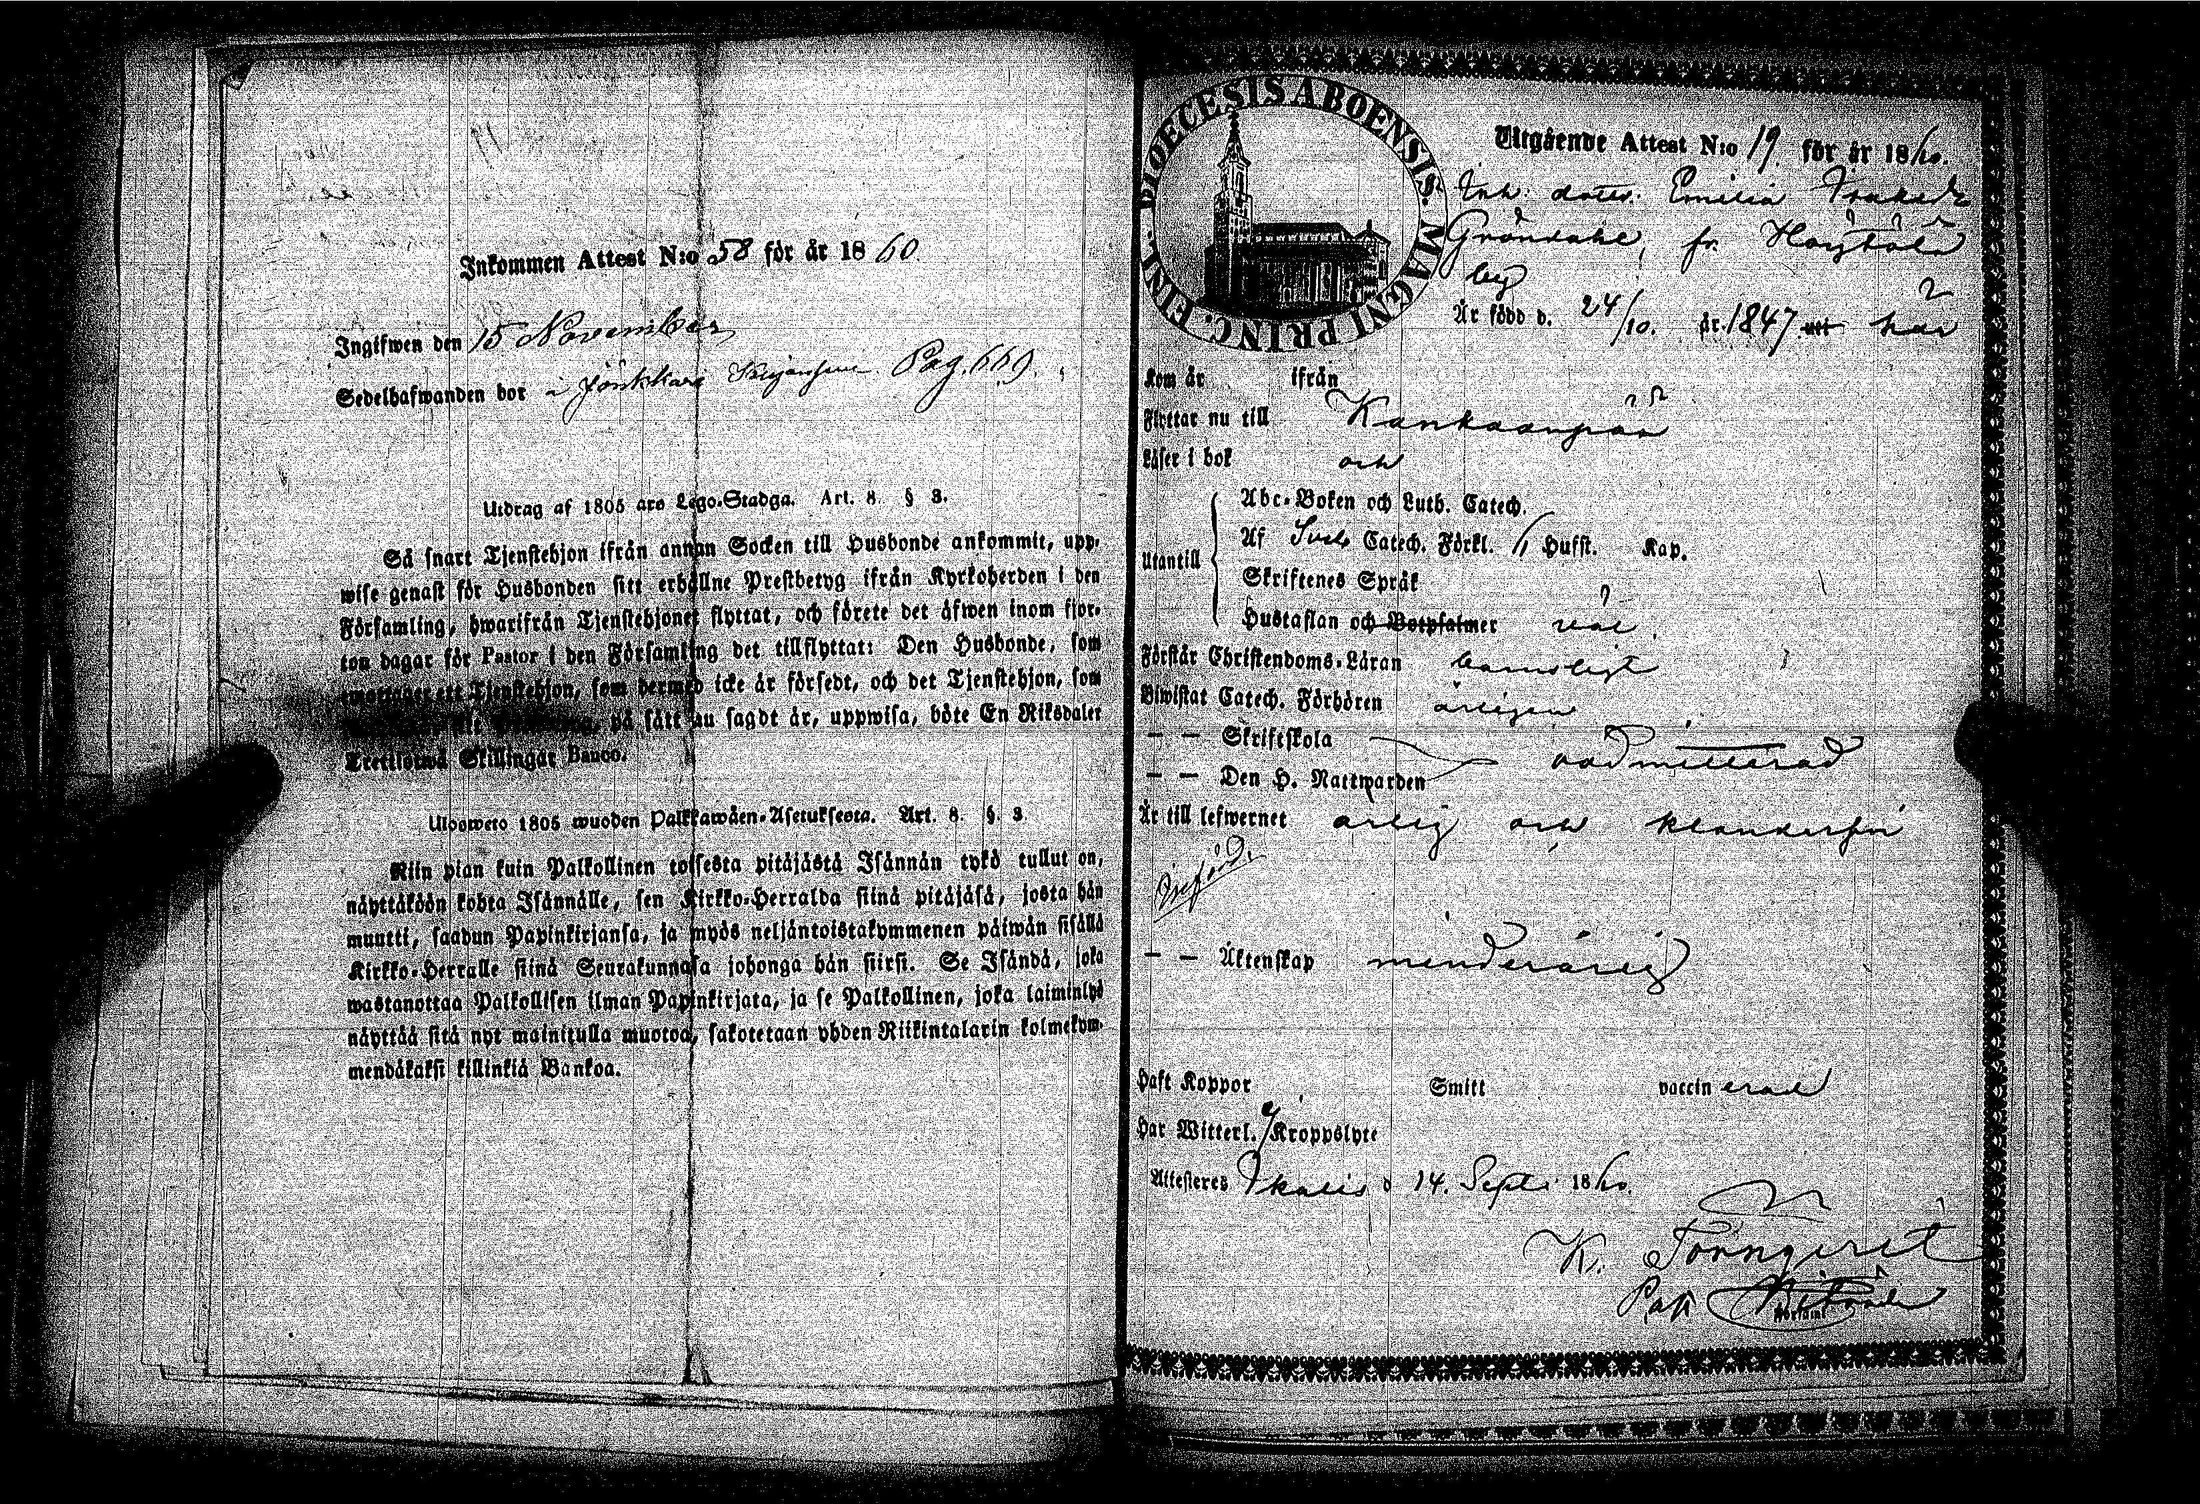 Inkommen Attest N:o 58 för år 1860
Ingifwen den 15 November
Sedelhafwanden bor i Pag. 669.
Utdrag af 1805 års Lego-Stadga. Art. 8. § 3.
Så snart Tjenstehjon ifrån annan Socken till Husbonde ankommit, upp-
wise genast för Husbonden sitt erhållne Prestbetyg ifrån Kyrkoherden i den
Församling, hwarifrån Tjenstehjonet flyttat, och förete det äfwen inom fjor-
ton dagar för Pastor i den Församling det tillflyttat: Den Husbonde, som
emottager ett Tjenstehjon, som dermed icke är försedt, och det Tjenstehjon, som
på sätt nu sagdt är, uppwisa, böte En Riksdaler
Trettiotwå Skillingar Banco.
Ulosweto 1805 wuoden Palkkawäen-Asetuksesta. Art. 8. §. 3.
Niin pian kuin Palkollinen toisesta pitäjästä Isännän tykö tullut on,
näyttäköön kohta Isännälle, sen Kirkko-Herralda siinä pitäjäsä, josta hän
muutti, saadun Papinkirjansa, ja myös neljäntoistakymmenen päiwän sisällä
Kirkko-Herralle siinä Seurakunnasa johonga hän siirsi. Se Isändä, joka
wastanottaa Palkollisen ilman Papinkirjata, ja se Palkollinen, joka laiminlyö
näyttää sitä nyt mainitulla muotoa, sakotetaan yhden Riikintalarin kolmekym-
mendäkaksi killinkiä Bankoa.
DIOECESIS ABOENSIS. MAGNI PRINC. FINL.
Utgående Attest N:o 19 för år 1860.
Inh. dotter. Emilia
Gröndahl, fr.
by
Är född d. 24/10. år. 1847. att har
Kom år ifrån
Flyttar nu till Kankaanpää
Läser i bok och
Utantill
Abc-Boken och Luth. Catech.
Af Catech. Förkl. Hufst. Kap.
Skriftenes Språk
Hustaflan och Botpsalmer väl.
Förstår Christendoms-Läran barnsligt
Biwistat Catech. Förhören årligen
— — Skriftskola
oadmitterad
— — Den H. Nattwarden
Är till lefwernet ärlig och klanderfri
— — Äktenskap minderårig
Haft Koppor Smitt vaccinerad
Har Witterl. Kroppslyte
Attesteres Ikalis d 14. Sept. 1860.
K. Törnqvist